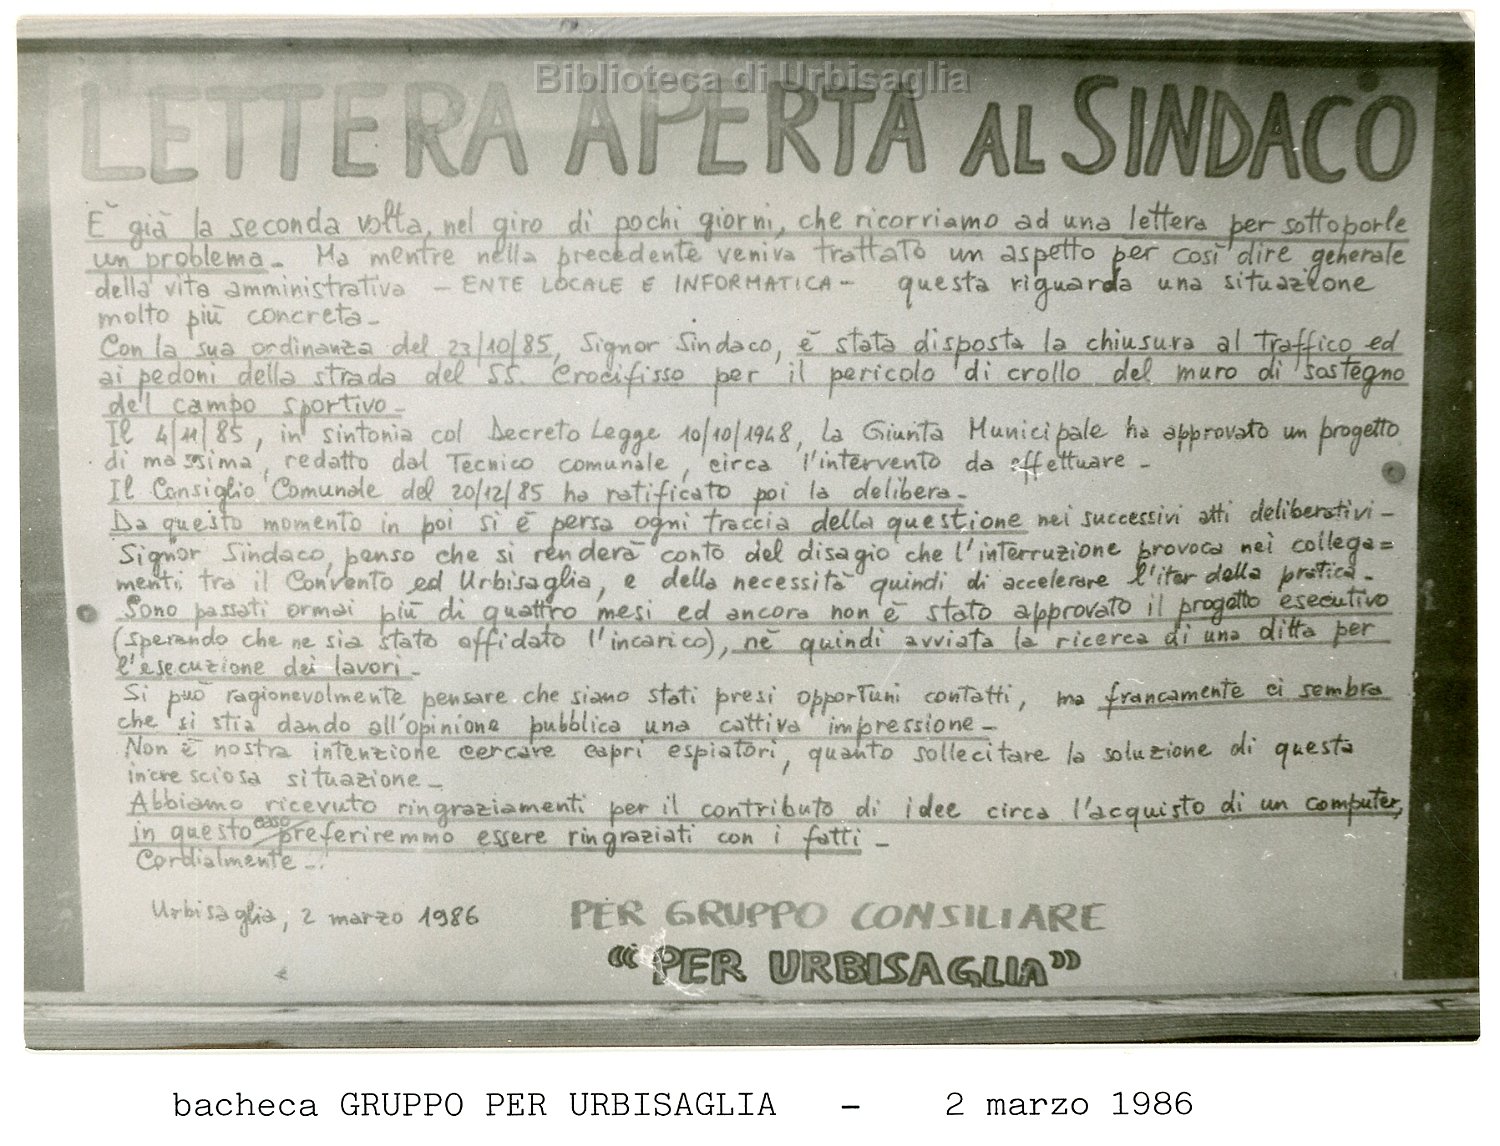 Biblioteca di Urbisaglia
LETTERA APERTA AL SINDACO
E' già la seconda volta, nel giro di pochi giorni, che ricorriamo ad una lettera per sottoporle
un problema - Ma mentre nella precedente veniva trattato un aspetto per così dire generale
della vita amministrativa - ENTE LOCALE E INFORMATICA - questa riguarda una situazione
molto più concreta -
Con la sua ordinanza del 23/10/85, Signor Sindaco, è stata disposta la chiusura al traffico ed
ai pedoni della strada del SS. Crocifisso per il pericolo di crollo del muro di sostegno
del campo sportivo -
Il 4/11/85, in sintonia col Decreto Legge 10/10/1948, la Giunta Municipale ha approvato un progetto
di massima, redatto dal Tecnico comunale, circa l'intervento da effettuare -
Il Consiglio Comunale del 20/12/85 ha ratificato poi la delibera -
Da questo momento in poi si è persa ogni traccia della questione nei successivi atti deliberativi -
Signor Sindaco, penso che si renderà conto del disagio che l'interruzione provoca nei collega=
menti tra il Convento ed Urbisaglia, e della necessità quindi di accelerare l'iter della pratica -
Sono passati ormai più di quattro mesi ed ancora non è stato approvato il progetto esecutivo
(sperando che ne sia stato affidato l'incarico), nè quindi avviata la ricerca di una ditta per
l'esecuzione dei lavori -
Si può ragionevolmente pensare che siano stati presi opportuni contatti, ma francamente ci sembra
che si stia dando all'opinione pubblica una cattiva impressione -
Non è nostra intenzione cercare capri espiatori, quanto sollecitare la soluzione di questa
incresciosa situazione -
Abbiamo ricevuto ringraziamenti per il contributo di idee circa l'acquisto di un computer,
in questo caso preferiremmo essere ringraziati con i fatti -
Cordialmente -
Urbisaglia, 2 marzo 1986 PER GRUPPO CONSILIARE
"PER URBISAGLIA"
bacheca GRUPPO PER URBISAGLIA - 2 marzo 1986